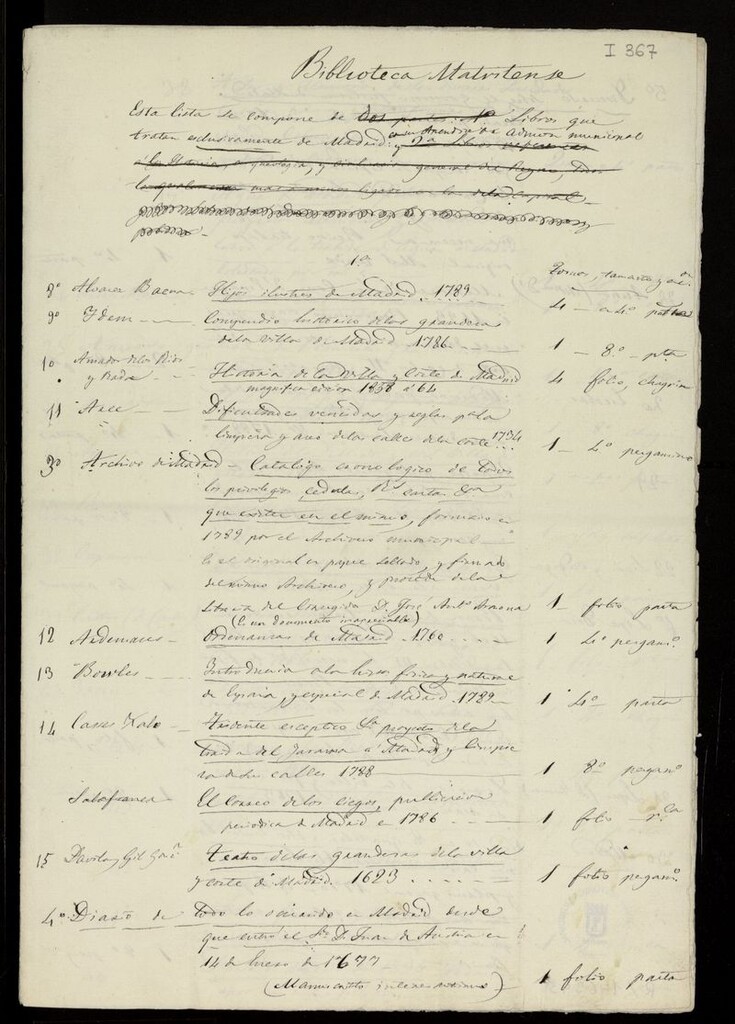 I 367
Biblioteca Matritense
Esta lista se compone de Dos partes: 1ª Libros que
tratan exclusivamente de Madrid: y 2ª Libros
con un Apendice de Admon municipal
a la Historia, y general del Reyno,
mas o menos en la Capital
1ª
Tomos, tamaño y
8º Alvarez Baena Hijos ilustres de Madrid. 1789 4 - en 4º pasta
9º Idem Compendio historico de las grandezas
de la villa de Madrid 1786. 1 - 8º - pta
10 Amador de los Rios
y Rada Historia de la villa y corte de Madrid 4 folio, chagrin
magnifica edicion 1858 á 64
11 Arce Dificultades vencidas y reglas pª la
limpieza y aseo de las calles de la corte 1734 1 - 4º pergamino
3º Archivo de Madrid - Catalogo cronologico de todos
los privilegios, cedulas, Rs cartas &ª
que existen en el mismo, formado en
1789 por el Archivero municipal
es el original en papel sellado, y firmado
del mismo Archivero, y procede de la
Libreria del Corregidor D. José Antº Armona 1 - folio pasta
(Es un documento inapreciable)
12 Ardemans - Ordenanzas de Madrid. 1760 1 4º pergamº
13 Bowles - Introduccion a la hisª fisica y natural
de España, y especial de Madrid. 1789 1 4º pasta
14 Casses Xalo - Accidente esceptico Sre proyecto de la
traida del Jarama a Madrid y limpie
za de sus calles 1788 1 8º pergamº
Salafranca El Correo de los ciegos, publicacion
periodica de Madrid en 1786 1 folio rca
15 Davila, Gil Gonz. Teatro de las grandezas de la villa
y corte de Madrid. 1623 1 folio pergamº
4º Diario de todo lo sucedido en Madrid desde
que entró el Sr D. Juan de Austria en
14 de Enero de 1677
(Manuscrito interesantisimo) 1 folio pasta